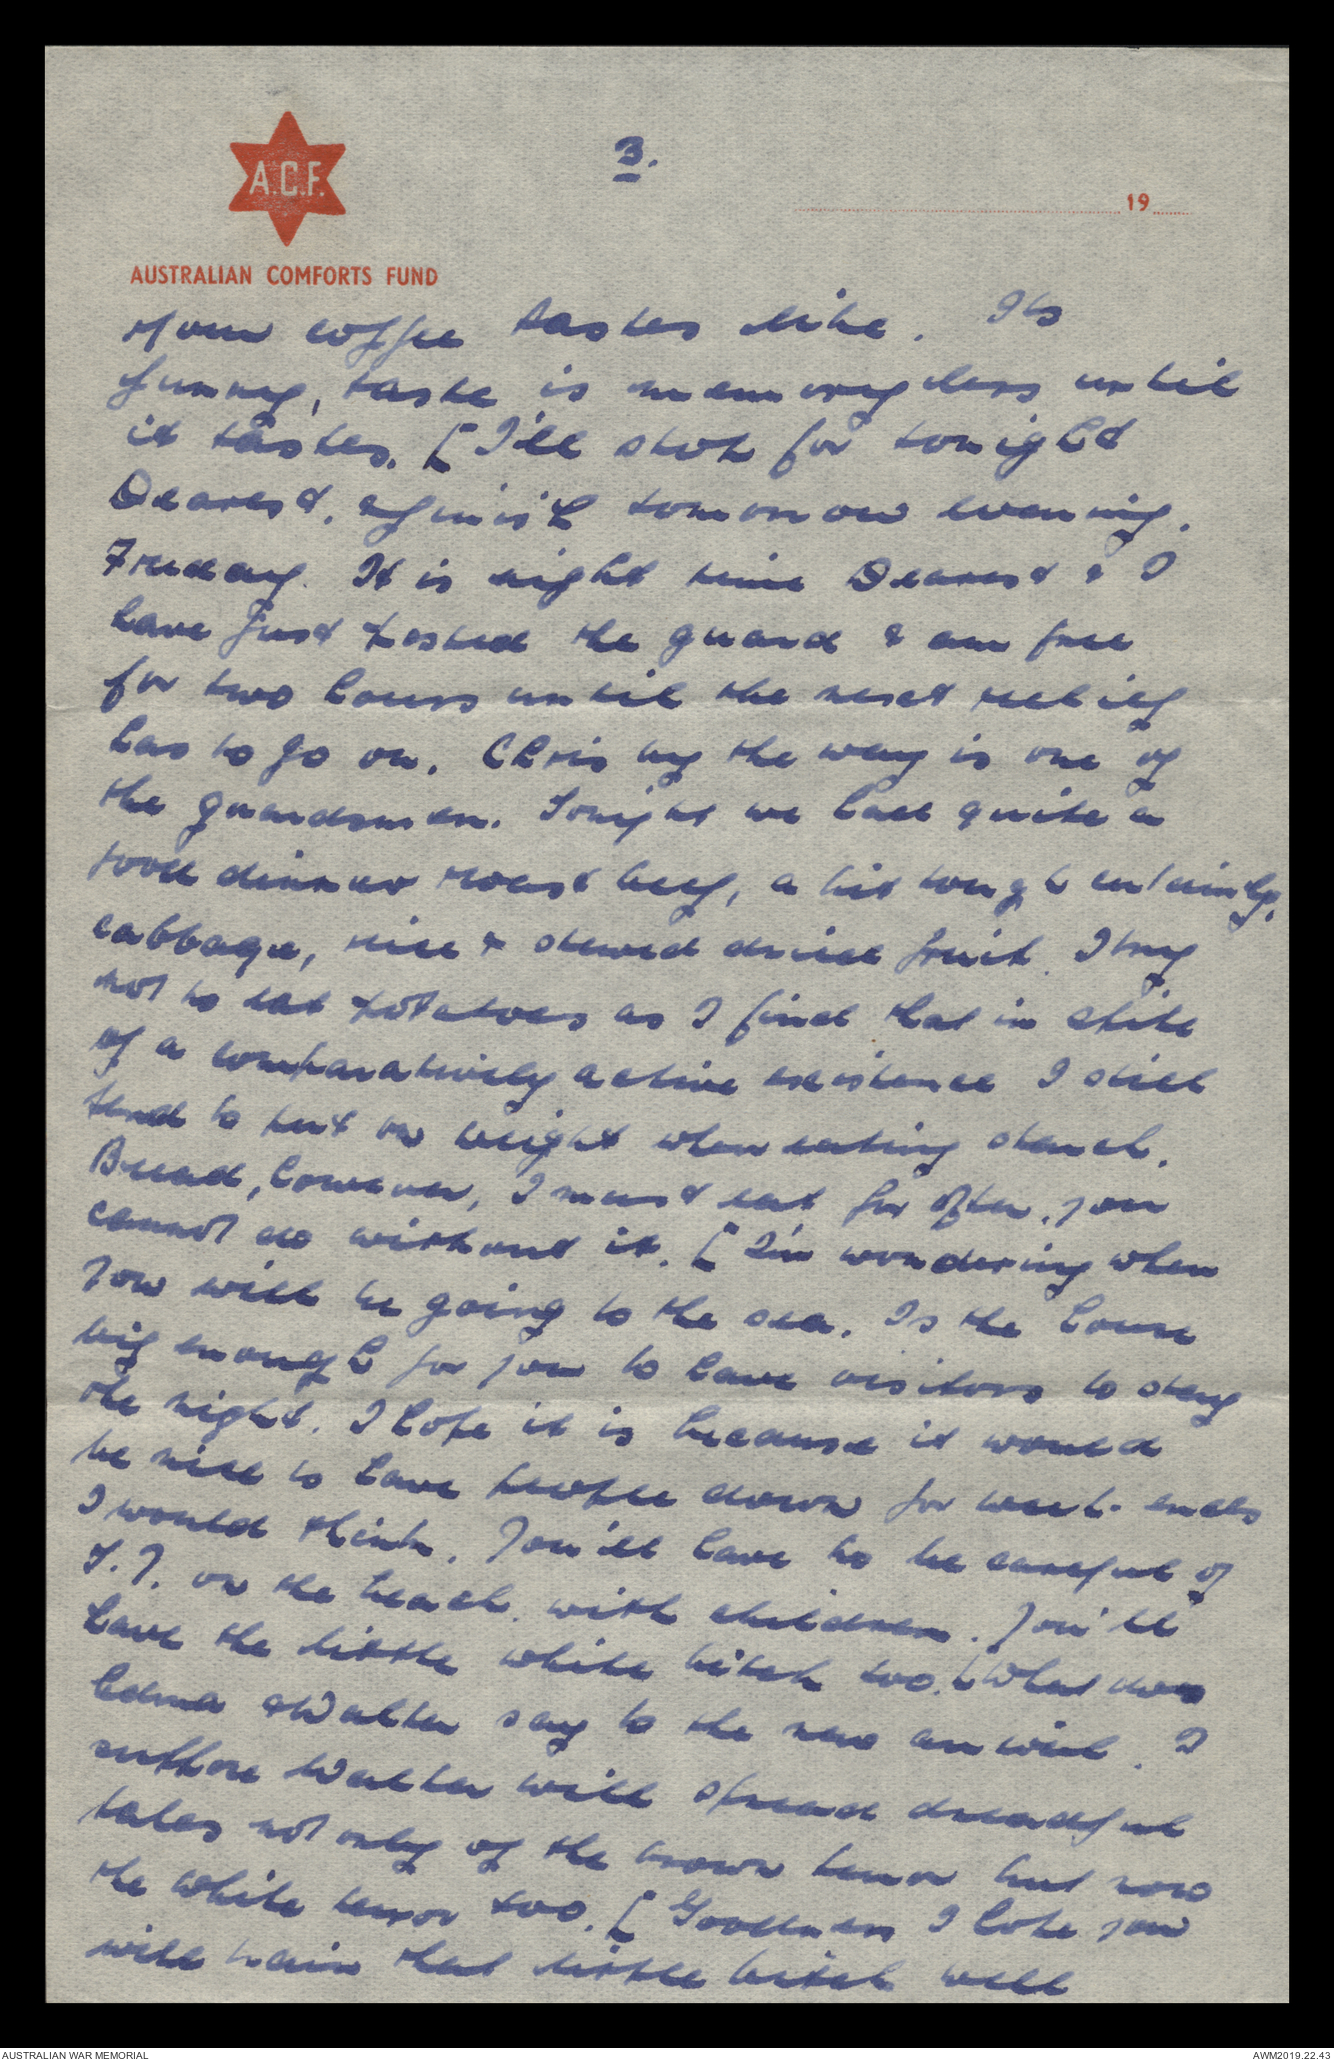 3.
A.C.F.
19
AUSTRALIAN COMFORTS FUND
your coffee tastes like. Its
funny, taste is memoryless until
it tastes. [I'll stop for tonight
Dearest, & finish tomorrow evening.
Friday. It is night time Dearest & I
have just posted the guard & am free
for two hours until the next relief
has to go on. Chris by the way is one of
the guardsmen. Tonight we had quite a
good dinner roast beef, a bit tough certainly,
cabbage, rice & stewed dried fruit. I try
not to eat potatoes as I find that in spite
of a comparatively active existence I still
tend to put on weight when eating starch.
Bread, however, I must eat for often, you
cannot do without it. [I'm wondering when
you will be going to the sea. Is the house
big enough for you to have visitors to stay
the night. I hope it is because it would
be nice to have people down for week-ends
I would think. You'll have to be careful of
on the beach. with children. You'll
have the little white bitch too. [What does
Edna & Walter say to the new arrival. I
suppose Walter will spread dreadful
tales not only of the brown terror but now
the white terror too. [Goodness I hope you
will train that little bitch well
AUSTRALIAN WAR MEMORIAL
AWM2019.22.43